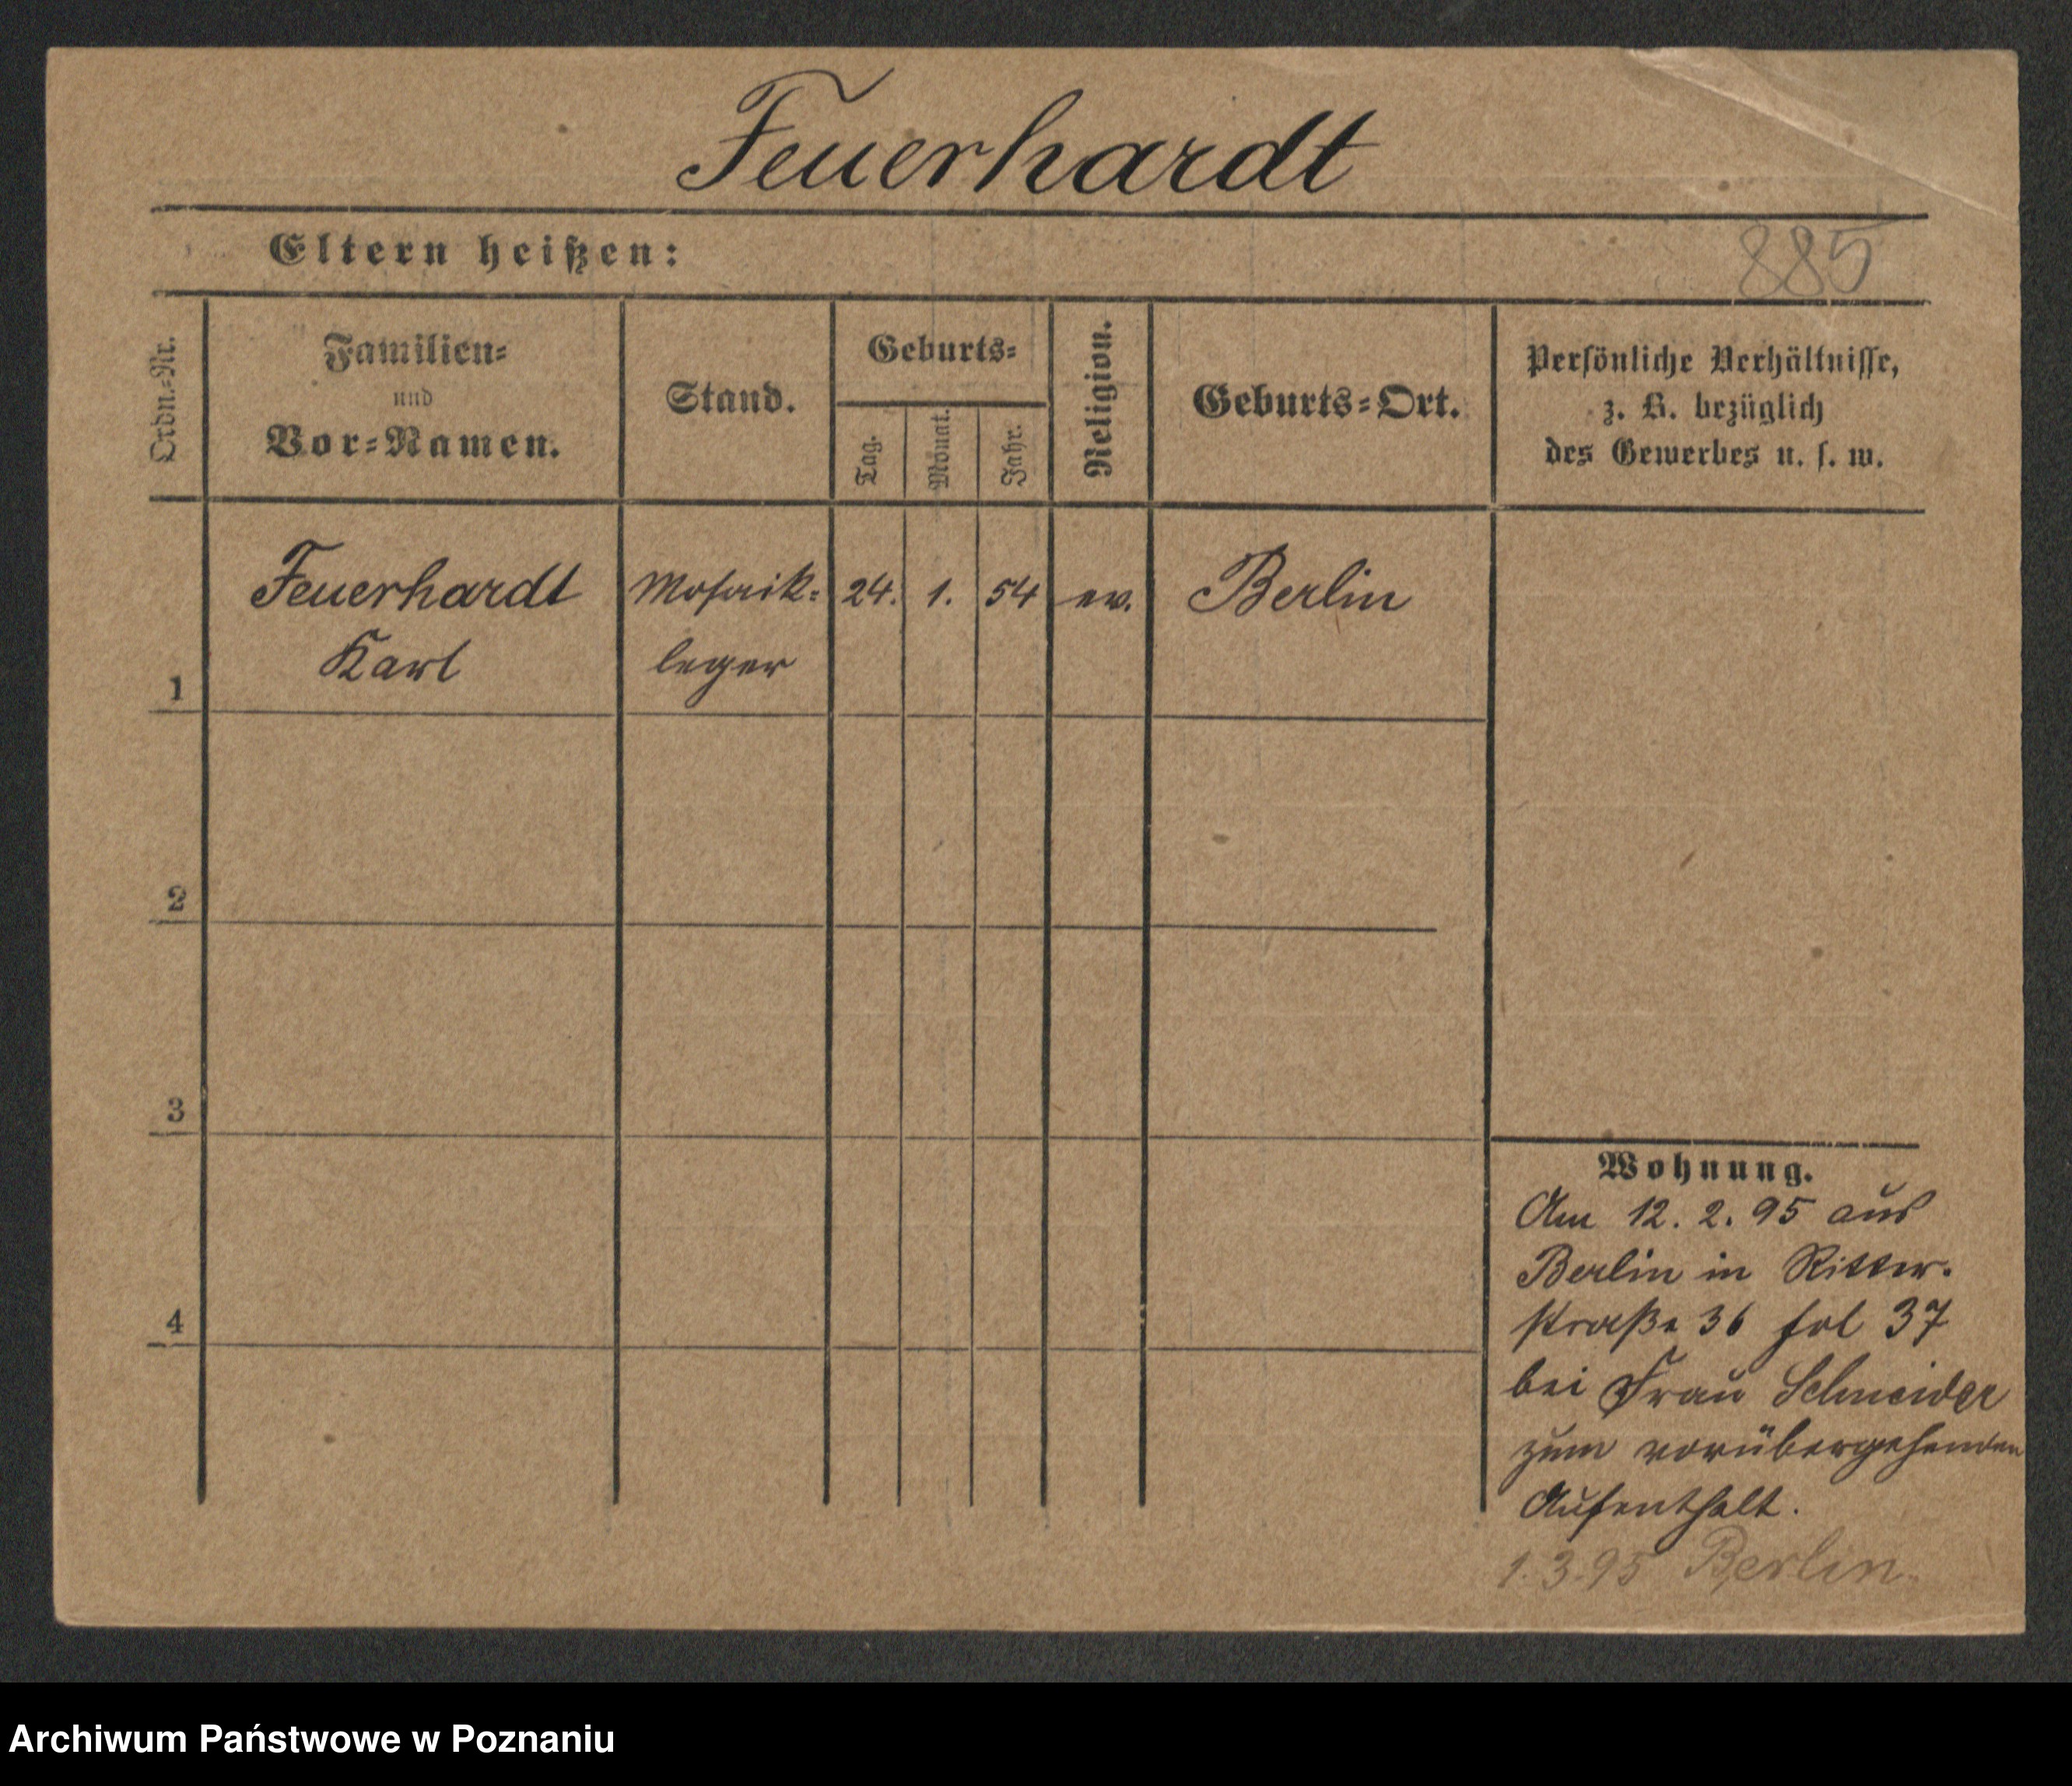 Feuerhardt
Eltern heißen:
885
Ordn.=Nr.
Familien=
und
Vor=Namen.
Stand.
Geburts=
Tag.
Monat.
Jahr.
Religion.
Geburts=Ort.
Persönliche Verhältnisse,
z. B. bezüglich
des Gewerbes u. s. w.
Feuerhardt Mosaik= 24. 1. 54 ev. Berlin
Karl leger
1
2
3
4
Wohnung.
Am 12. 2. 95 aus
Berlin in Ritter.
straße 36 fol 37
bei Frau Schneider
zum vorübergehenden
Aufenthalt.
1.3.95 Berlin.
Archiwum Państwowe w Poznaniu